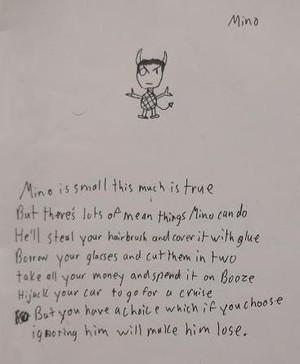 Mino
Mino is small this much is true
But there's lots of mean things Mino can do
He'll steal your hairbrush and cover it with glue
Borrow your glasses and cut them in two
take all your money and spend it on Booze
Hijack your car to go for a cruise
But you have a choice which if you choose
ignoring him will make him lose.